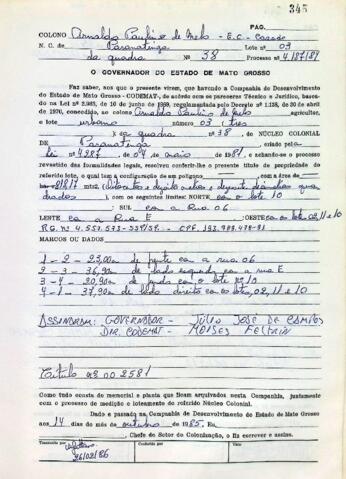 PAG. 345
COLONO Arnaldo Paulino de Melo - E.C. - Casado
N. C. de Paranatinga Lote nº 03
da quadra nº 38 Processo nº 4.187/81
O GOVERNADOR DO ESTADO DE MATO GROSSO
Faz saber, aos que o presente virem, que havendo a Companhia de Desenvolvimento
do Estado de Mato Grosso - CODEMAT, de acordo com os pareceres Técnico e Jurídico, basea-
do na Lei nº 2.963, de 10 de junho de 1969, regulamentada pelo Decreto nº 1.138, de 30 de abril
de 1970, concedido, ao colono Arnaldo Paulino de Melo agricultor,
o lote urbano nº 03 (três
x da quadra nº 38, DE NÚCLEO COLONIAL
DE Paranatinga, criado pela
Lei nº 4287 de 04 de maio de 1981, e achando-se o processo
revestido das formalidades legais, resolveu conferir-lhe o presente título de propriedade do
referido lote, o qual tem a configuração de um polígono com a área de
817 mts2. (Oitocentos e
drados), com os seguintes limites: NORTE com o lote 10
: SUL com a Rua 06
LESTE com a Rua E : OESTE com os lotes 02, 11 e 10
MARCOS OU DADOS
1 - 2 - 23,00m de frente com a rua 06
2 - 3 - 36,90m de lado esquerdo com a rua E
3 - 4 - 20,90m de fundo com o lote nº 10
4 - 1 - 37,90m de lado direito com os lotes, 02, 11 e 10
ASSINARAM: GOVERNADOR - JÚLIO JOSÉ DE CAMPOS
DIR. CODEMAT - MOISES FELTRIN
Título nº 00 2581
Como tudo consta do memorial e planta que ficam arquivados nesta Companhia, juntamente
com o processo de medição e loteamento do referido Núcleo Colonial.
Dado e passado na Companhia de Desenvolvimento do Estado de Mato Grosso
aos 14 dias do mês de outubro de 1985. Eu,
, Chefe do Setor de Colonização, o fiz escrever e assino.
26/02/86